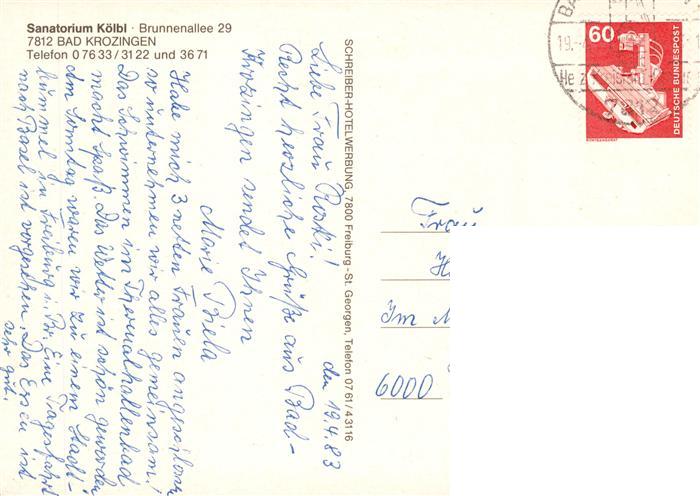 Sanatorium Kölbl · Brunnenallee 29
7812 BAD KROZINGEN
Telefon 0 76 33 / 31 22 und 36 71
den 19.4.83
Liebe Frau Roski!
Recht herzliche Grüße aus Bad-
Krozingen sendet Ihnen
Marie Thiela
Habe mich 3 netten Frauen angeschlossen
so unternehmen wir alles gemeinsam!
Das Schwimmen im Thermalhallenbad
macht Spaß. Das Wetter ist schön geworden
am Sonntag waren wir zu einem Stadt-
bummel in Freiburg i. Br. Eine Tagesfahrt
nach Basel ist vorgesehen. Das Essen ist
sehr gut.
SCHREIBER-HOTELWERBUNG, 7800 Freiburg-St. Georgen, Telefon 07 61 / 4 31 16
60
DEUTSCHE BUNDESPOST
BA
19.-4
He z
Frau
H
Im
6000